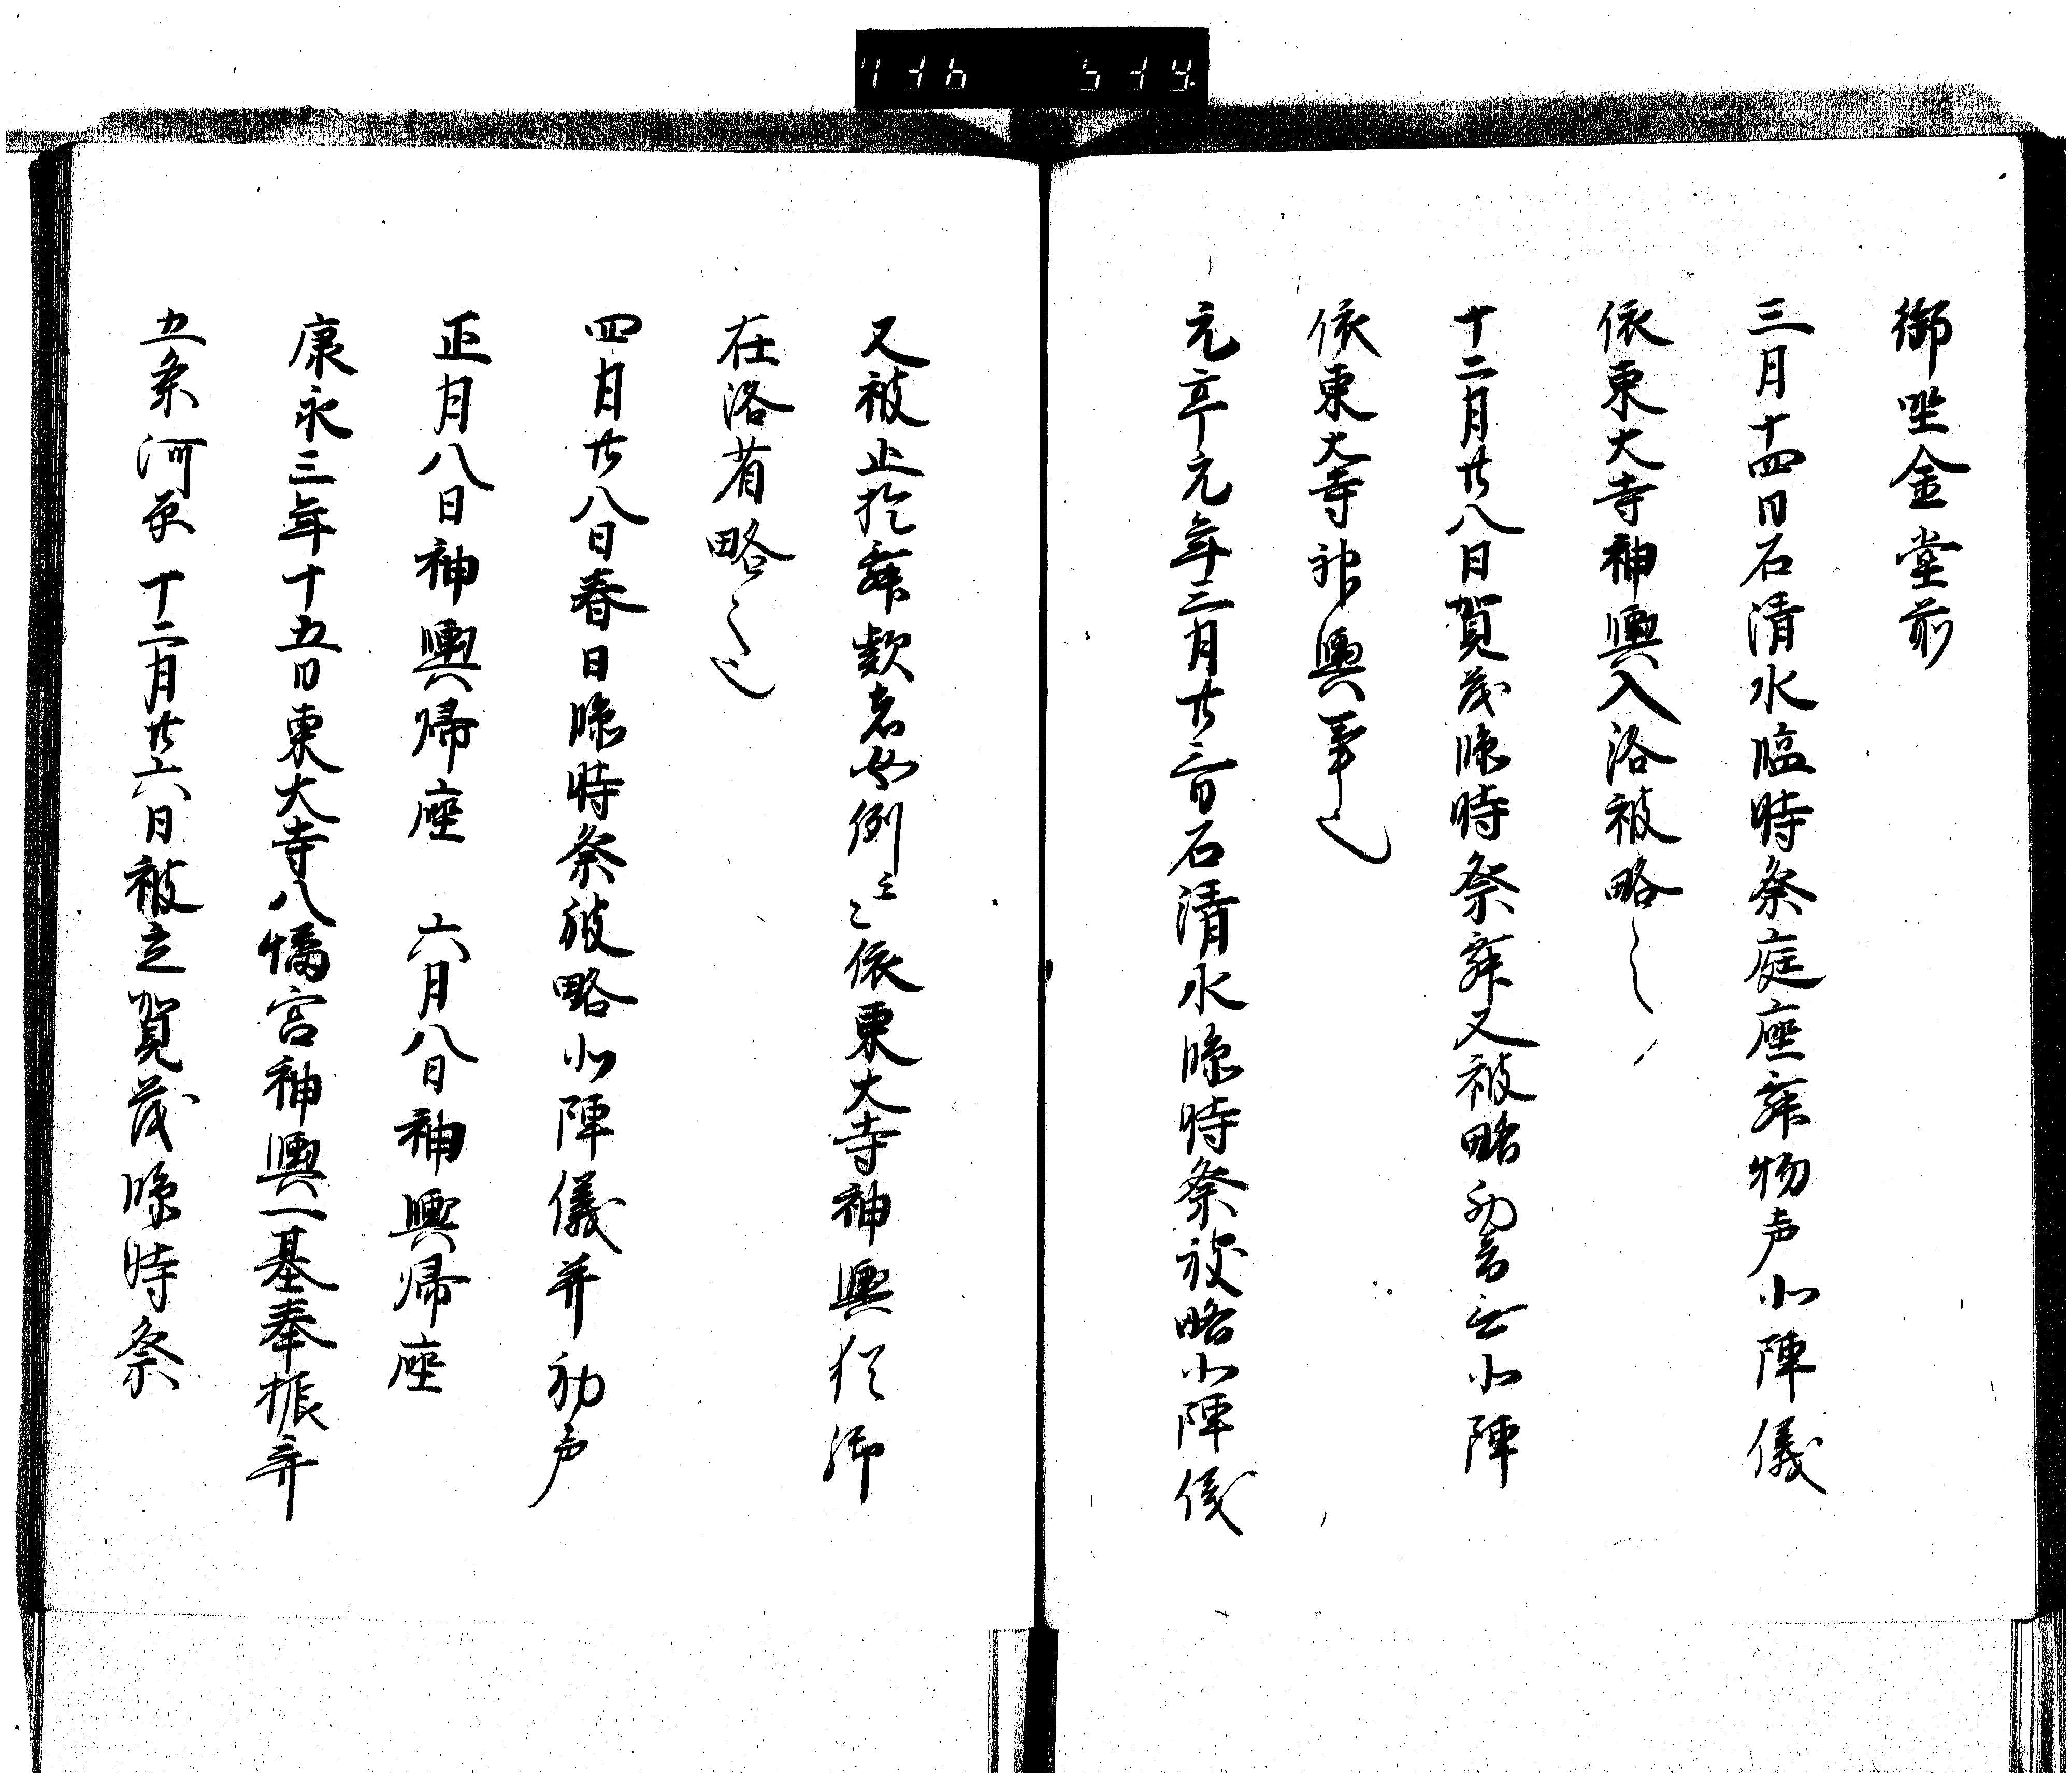 御坐金堂前
三月十四日石清水臨時祭庭座舞物声小陣儀
依東大寺神輿入洛被略之
十二月廿八日賀茂臨時祭舞又被略 小陣
依東大寺神輿事也
元亨元年三月廿三日石清水臨時祭被略小陣儀
又被止於舞歟者如例云々依東大寺神輿猶御
在洛有略之也
四月廿八日春日臨時祭被略小陣儀并物声
正月八日神輿帰座 六月八日神輿帰座
康永三年十五日東大寺八幡宮神輿一基奉振弃
五条河原十二月廿六日被立賀茂臨時祭